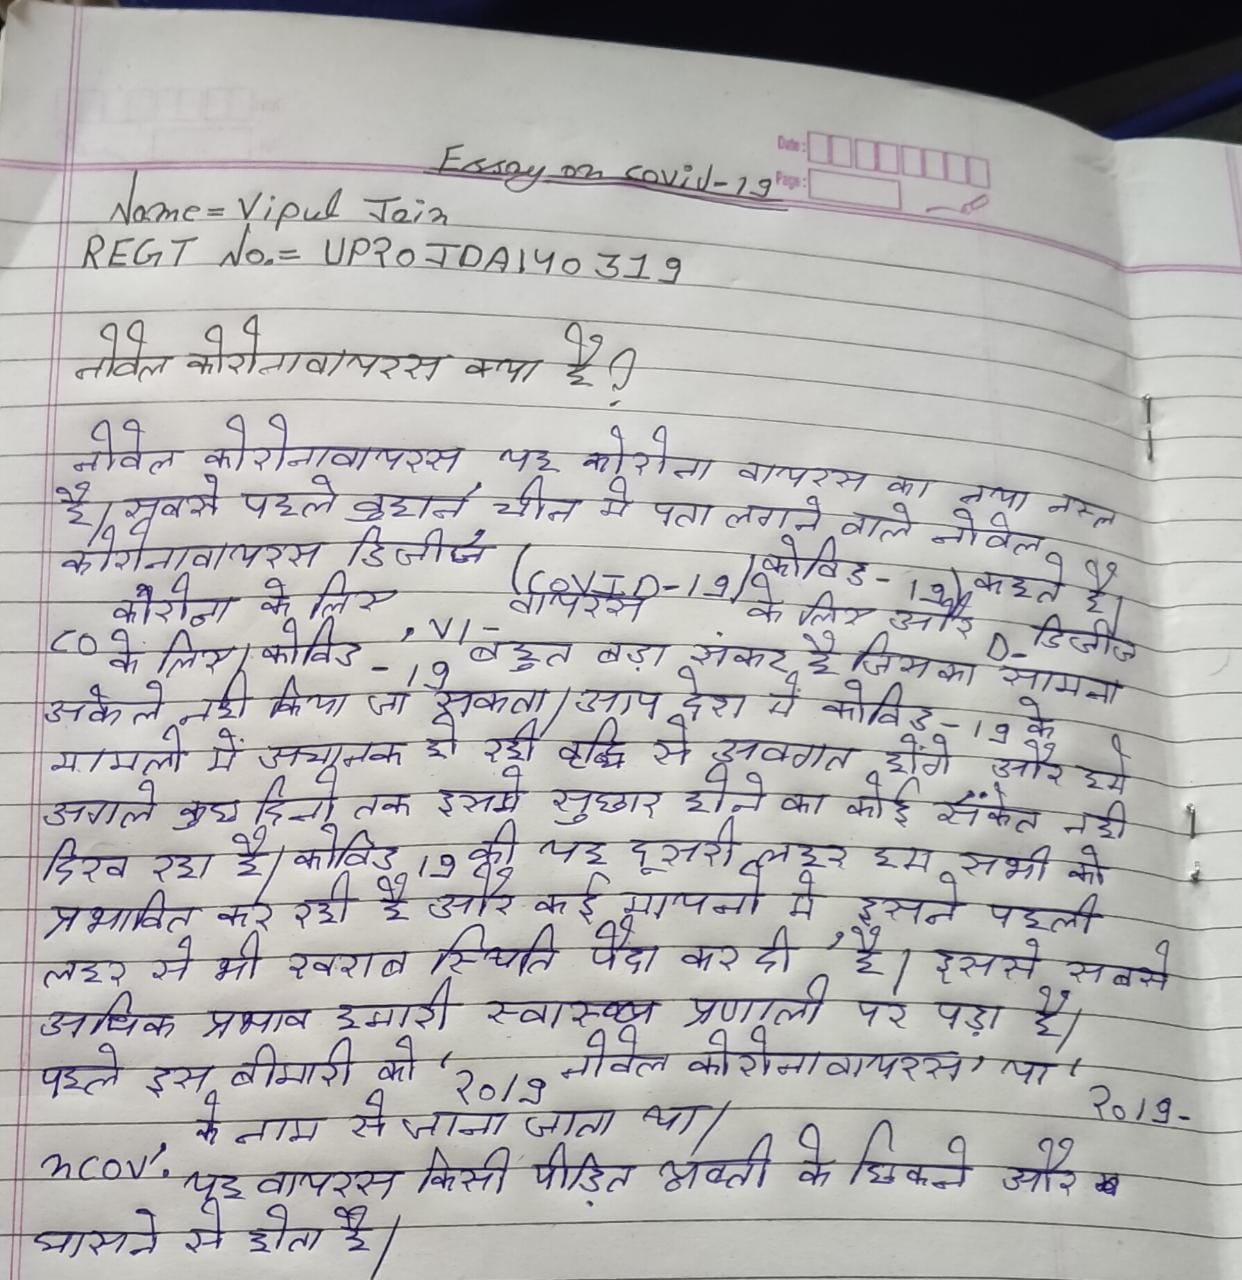 Date:
Page:
Essay on covid-19
Name = Vipul Jain
REGT No. = UP20JDA140319
नोवेल कोरोनावायरस क्या है?
नोवेल कोरोनावायरस यह कोरोना वायरस का नया नस्ल
है। सबसे पहले वुहान, चीन मे पता लगाने वाले नोवेल
कोरोनावायरस डिजीज (COVID-19) कोविड-19) कहते है।
कोरोना के लिए वायरस के लिए और D- डिजीज
CO के लिए। कोविड -19, VI- बहुत बड़ा संकट है जिसका सामना
अकेले नही किया जा सकता। आप देश में कोविड-19 के
मामलो में अचानक हो रही वृद्धि से अवगत होंगे और हमे
अगले कुछ दिनो तक इसमे सुधार होने का कोई संकेत नही
दिख रहा है। कोविड 19 की यह दूसरी लहर हम सभी को
प्रभावित कर रही है और कई मायनो मे इसने पहली
लहर से भी खराब स्थिति पैदा कर दी है। इससे सबसे
अधिक प्रभाव हमारी स्वास्थ्य प्रणाली पर पड़ा है।
पहले इस बीमारी को '2019 नोवेल कोरोनावायरस' या '2019-
nCOV'. के नाम से जाना जाता था।
यह वायरस किसी पीड़ित व्यक्ती के छिकने और
खासने से होता है।